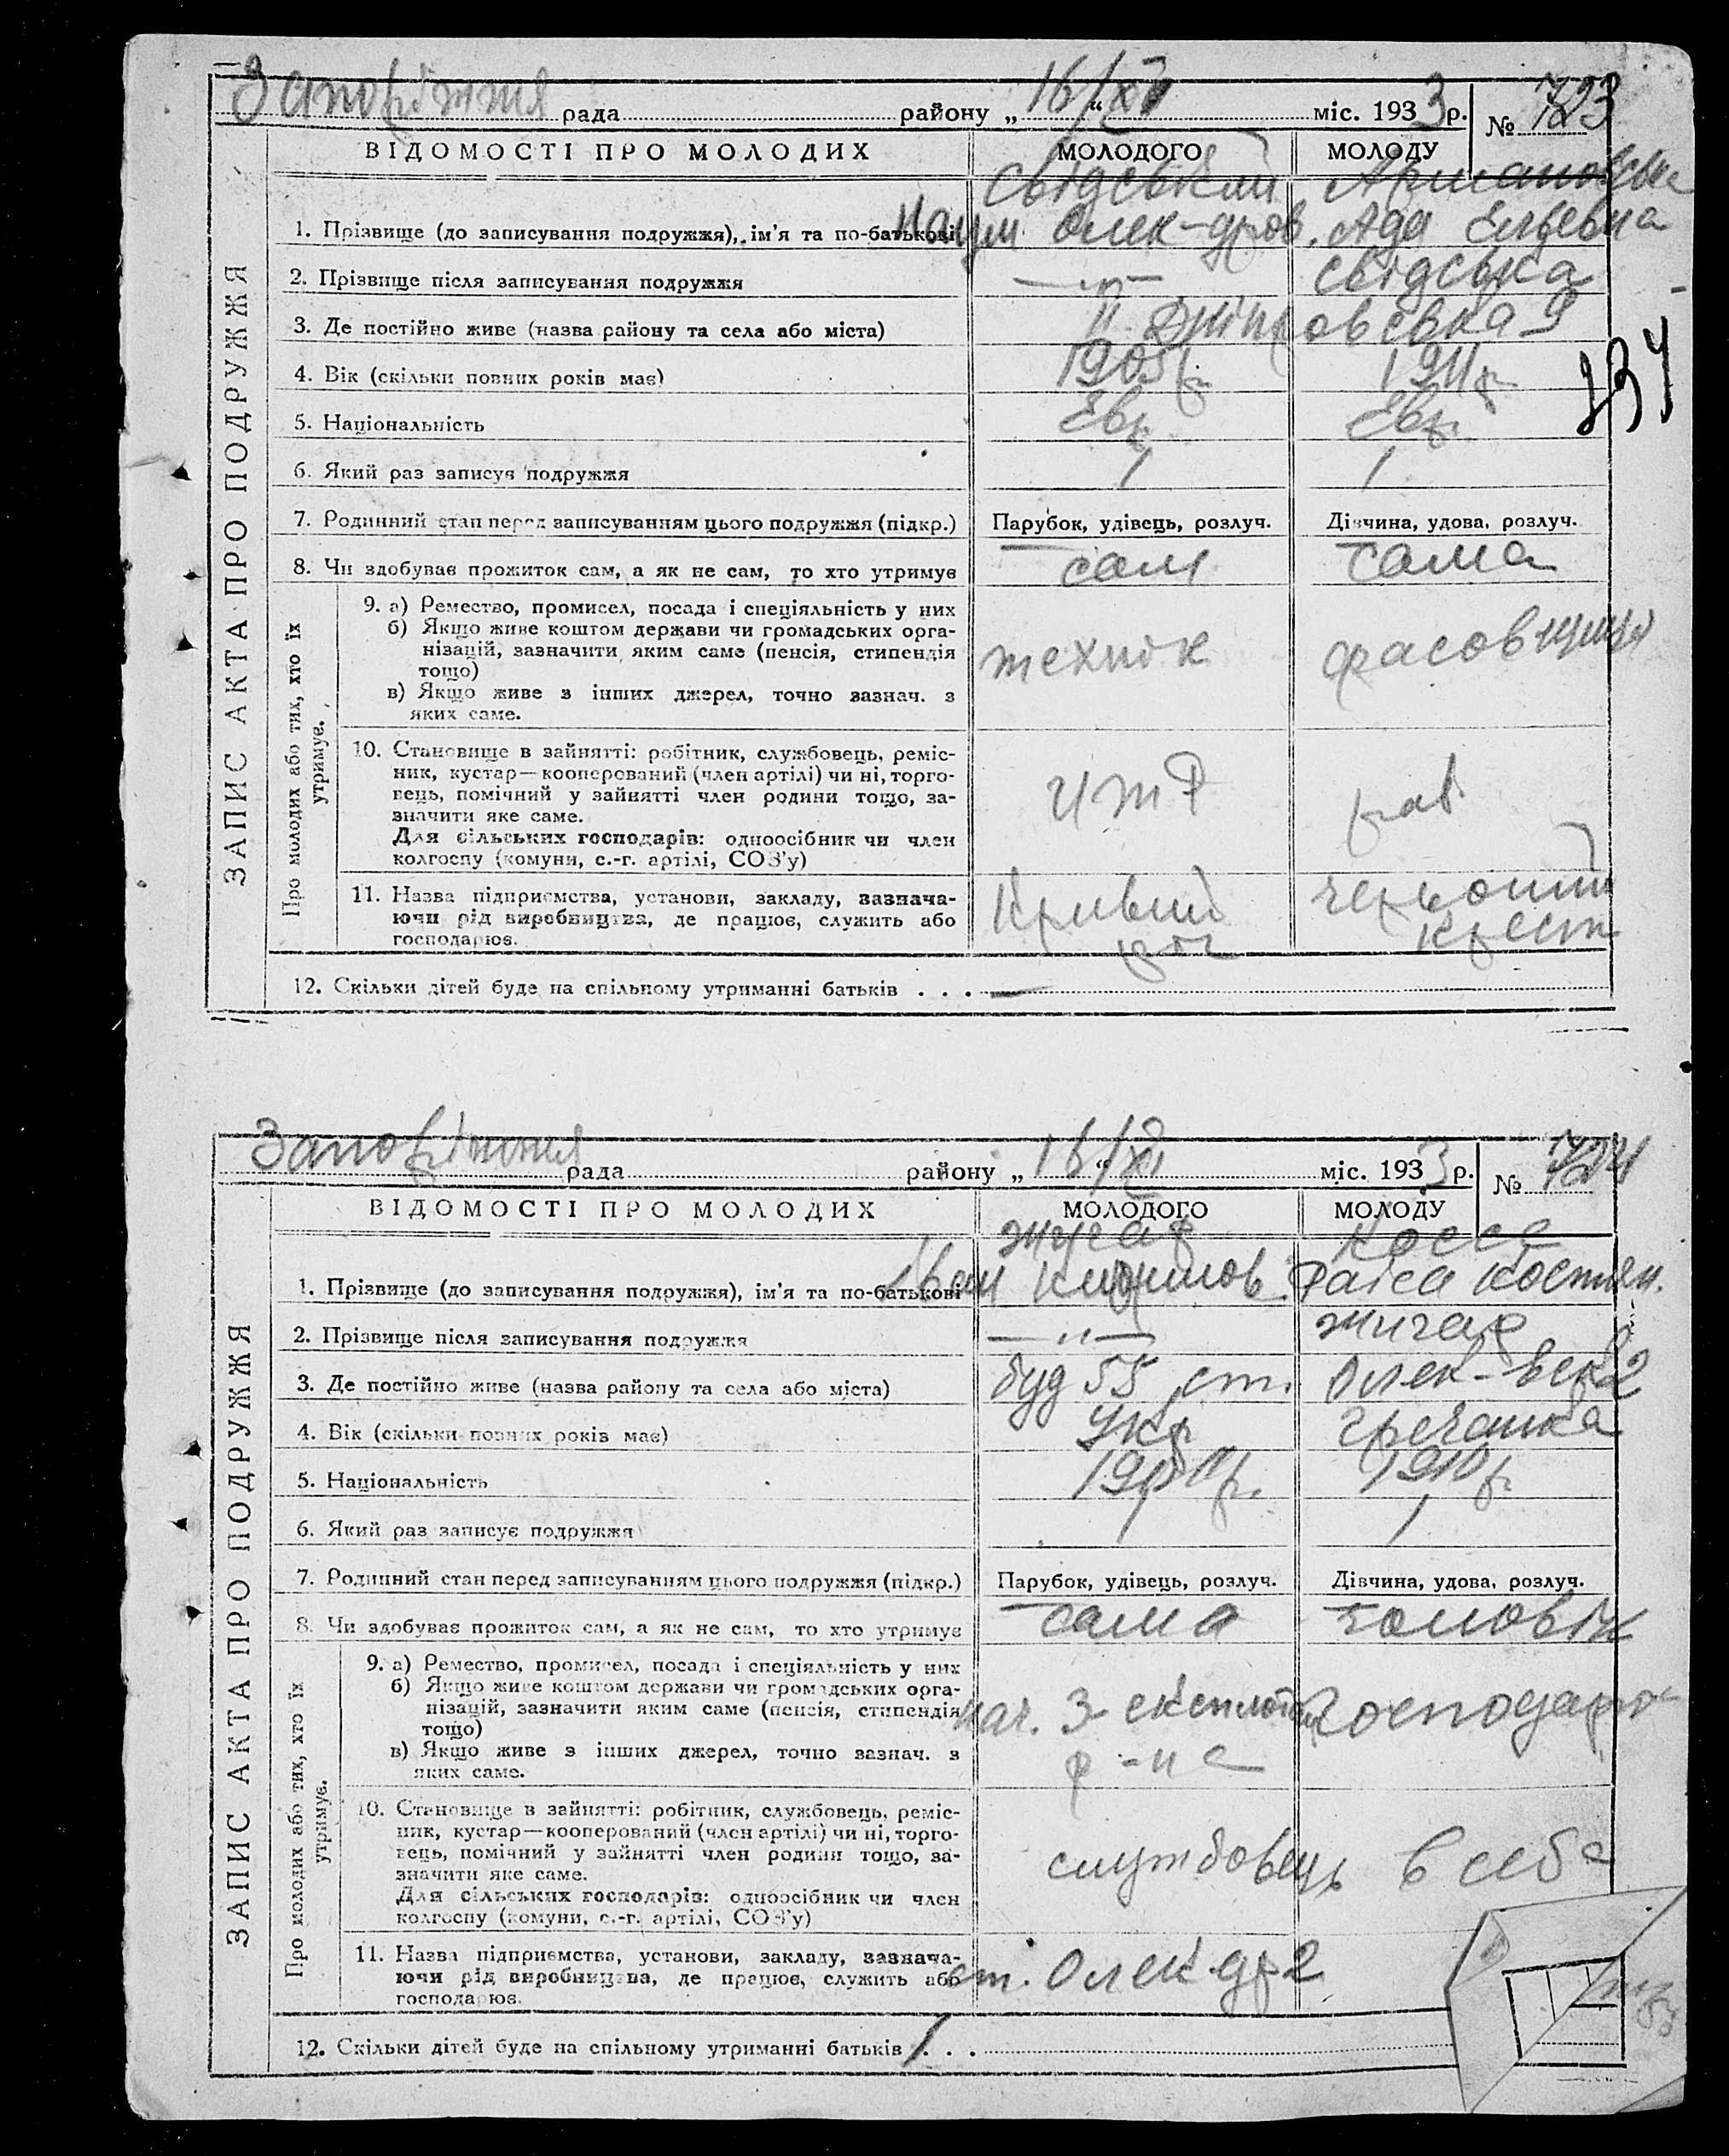 Запоріжжя рада району „ 16/XI “ міс. 1933 р. № 723
ЗАПИС АКТА ПРО ПОДРУЖЖЯ
ВІДОМОСТІ ПРО МОЛОДИХ МОЛОДОГО МОЛОДУ
Свідський
1. Прізвище (до записування подружжя), ім'я та по-батькові Наум Олек-дров. Ада Ельевна
2. Прізвище після записування подружжя —„— Свідська
3. Де постійно живе (назва району та села або міста)
4. Вік (скільки повних років має) 1905 р. 1911 р.
5. Національність Евр. Евр.
6. Який раз записує подружжя 1 1
7. Родинний стан перед записуванням цього подружжя (підкр.) Парубок, удівець, розлуч. Дівчина, удова, розлуч.
8. Чи здобуває прожиток сам, а як не сам, то хто утримує сам сама
Про молодих або тих, хто їх утримує.
9. а) Ремество, промисел, посада і спеціяльність у них
б) Якщо живе коштом держави чи громадських орга-
нізацій, зазначити яким саме (пенсія, стипендія
тощо) технік фасовщиця
в) Якщо живе з інших джерел, точно зазнач. з
яких саме.
10. Становище в зайнятті: робітник, службовець, реміс-
ник, кустар—кооперований (член артілі) чи ні, торго-
вець, помічний у зайнятті член родини тощо, за-
значити яке саме. ИТР роб.
Для сільських господарів: одноосібник чи член
колгоспу (комуни, с.-г. артілі, СОЗ'у)
11. Назва підприємства, установи, закладу, зазнача-
ючи рід виробництва, де працює, служить або
господарює. Кривий ріг Червоний Крест
12. Скільки дітей буде на спільному утриманні батьків . . . —
334
Запоріжжя рада району „ 16/XI “ міс. 1933 р. № 724
ЗАПИС АКТА ПРО ПОДРУЖЖЯ
ВІДОМОСТІ ПРО МОЛОДИХ МОЛОДОГО МОЛОДУ
Жигар Коссе
1. Прізвище (до записування подружжя), ім'я та по-батькові Іван Раіса Костян.
2. Прізвище після записування подружжя —„— Жигар
3. Де постійно живе (назва району та села або міста) буд 55 ст. Олек-вськ 2
4. Вік (скільки повних років має) Укр гречанка
5. Національність 1910 р.
6. Який раз записує подружжя 1 1
7. Родинний стан перед записуванням цього подружжя (підкр.) Парубок, удівець, розлуч. Дівчина, удова, розлуч.
8. Чи здобуває прожиток сам, а як не сам, то хто утримує сама чоловік
Про молодих або тих, хто їх утримує.
9. а) Ремество, промисел, посада і спеціяльність у них
б) Якщо живе коштом держави чи громадських орга-
нізацій, зазначити яким саме (пенсія, стипендія
тощо) нач. 3 р-на
в) Якщо живе з інших джерел, точно зазнач. з
яких саме.
10. Становище в зайнятті: робітник, службовець, реміс-
ник, кустар—кооперований (член артілі) чи ні, торго-
вець, помічний у зайнятті член родини тощо, за-
значити яке саме. службовець в себе
Для сільських господарів: одноосібник чи член
колгоспу (комуни, с.-г. артілі, СОЗ'у)
11. Назва підприємства, установи, закладу, зазнача-
ючи рід виробництва, де працює, служить або
господарює. ст. Олек-др 2
12. Скільки дітей буде на спільному утриманні батьків 1 . . .